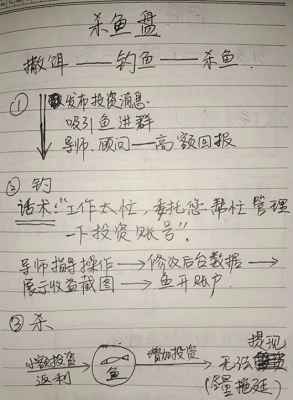 杀鱼盘
撒饵——钓鱼——杀鱼
① 发布投资消息
吸引鱼进群
导师、顾问——高额回报
② 钓
话术:“工作太忙,委托您帮忙管理
一下投资账号”。
导师指导操作→修改后台数据→
展示收益截图→鱼开账户
③ 杀
小额投资
返利
鱼
增加投资
提现
无法
(尽量拖延)